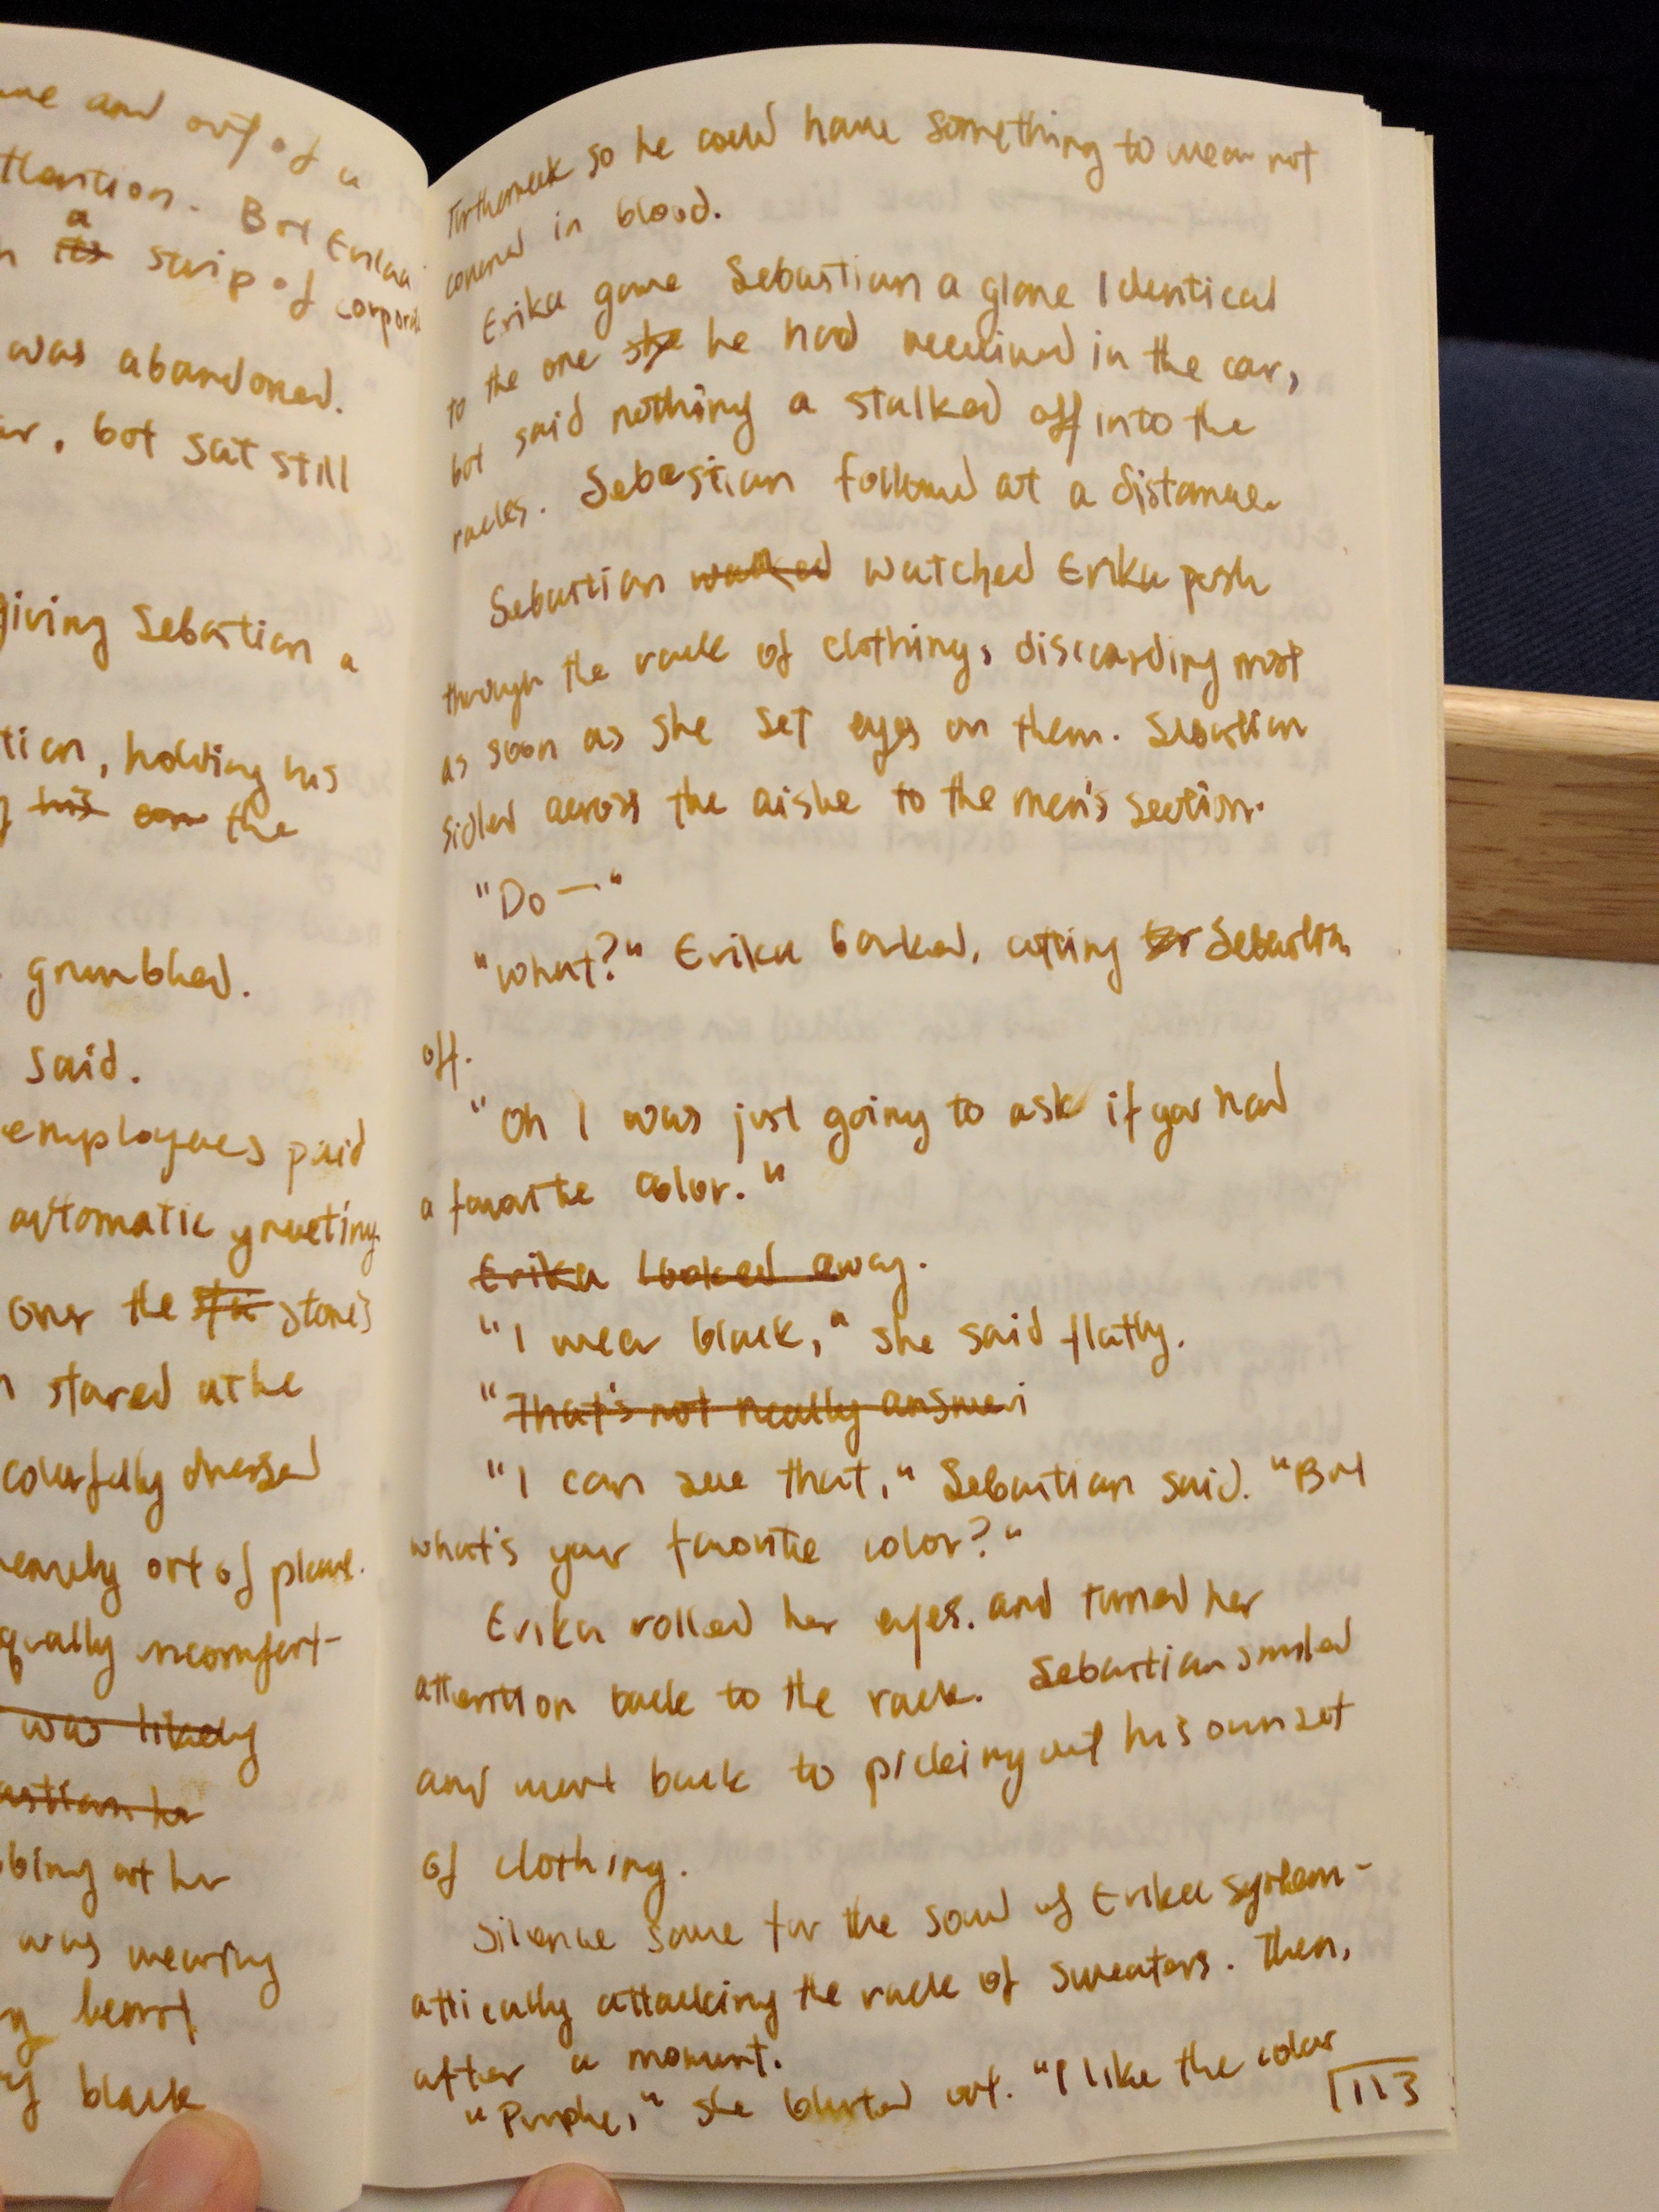 me and out of a
ttention. But Erika
a
its strip of corporate
was abandoned.
, but sat still
giving Sebastian a
tian, holding his
his the
grumbled.
said.
employees paid
automatic greeting.
over the store's
stared at the
colorfully dressed
out of place.
qually uncomfort-
was likely
astian he
bing at her
was wearing
heart
black
turtleneck so he could have something to wear not
covered in blood.
Erika gave Sebastian a glare identical
to the one she he had received in the car,
but said nothing a stalked off into the
racks. Sebastian followed at a distance.
Sebastian walked watched Erika push
through the rack of clothing, discarding most
as soon as she set eyes on them. Sebastian
sidled across the aisle to the men's section.
"Do—"
"What?" Erika barked, cutting Sebastian
off.
"Oh I was just going to ask if you had
a favorite color."
Erika looked away.
"I wear black," she said flatly.
"That's not really answeri
"I can see that," Sebastian said. "But
what's your favorite color?"
Erika rolled her eyes. and turned her
attention back to the rack. Sebastian smiled
and went back to picking out his own set
of clothing.
Silence save for the sound of Erika system-
attically attacking the rack of sweaters. Then,
after a moment.
"Purple," she blurted out. "I like the color
113